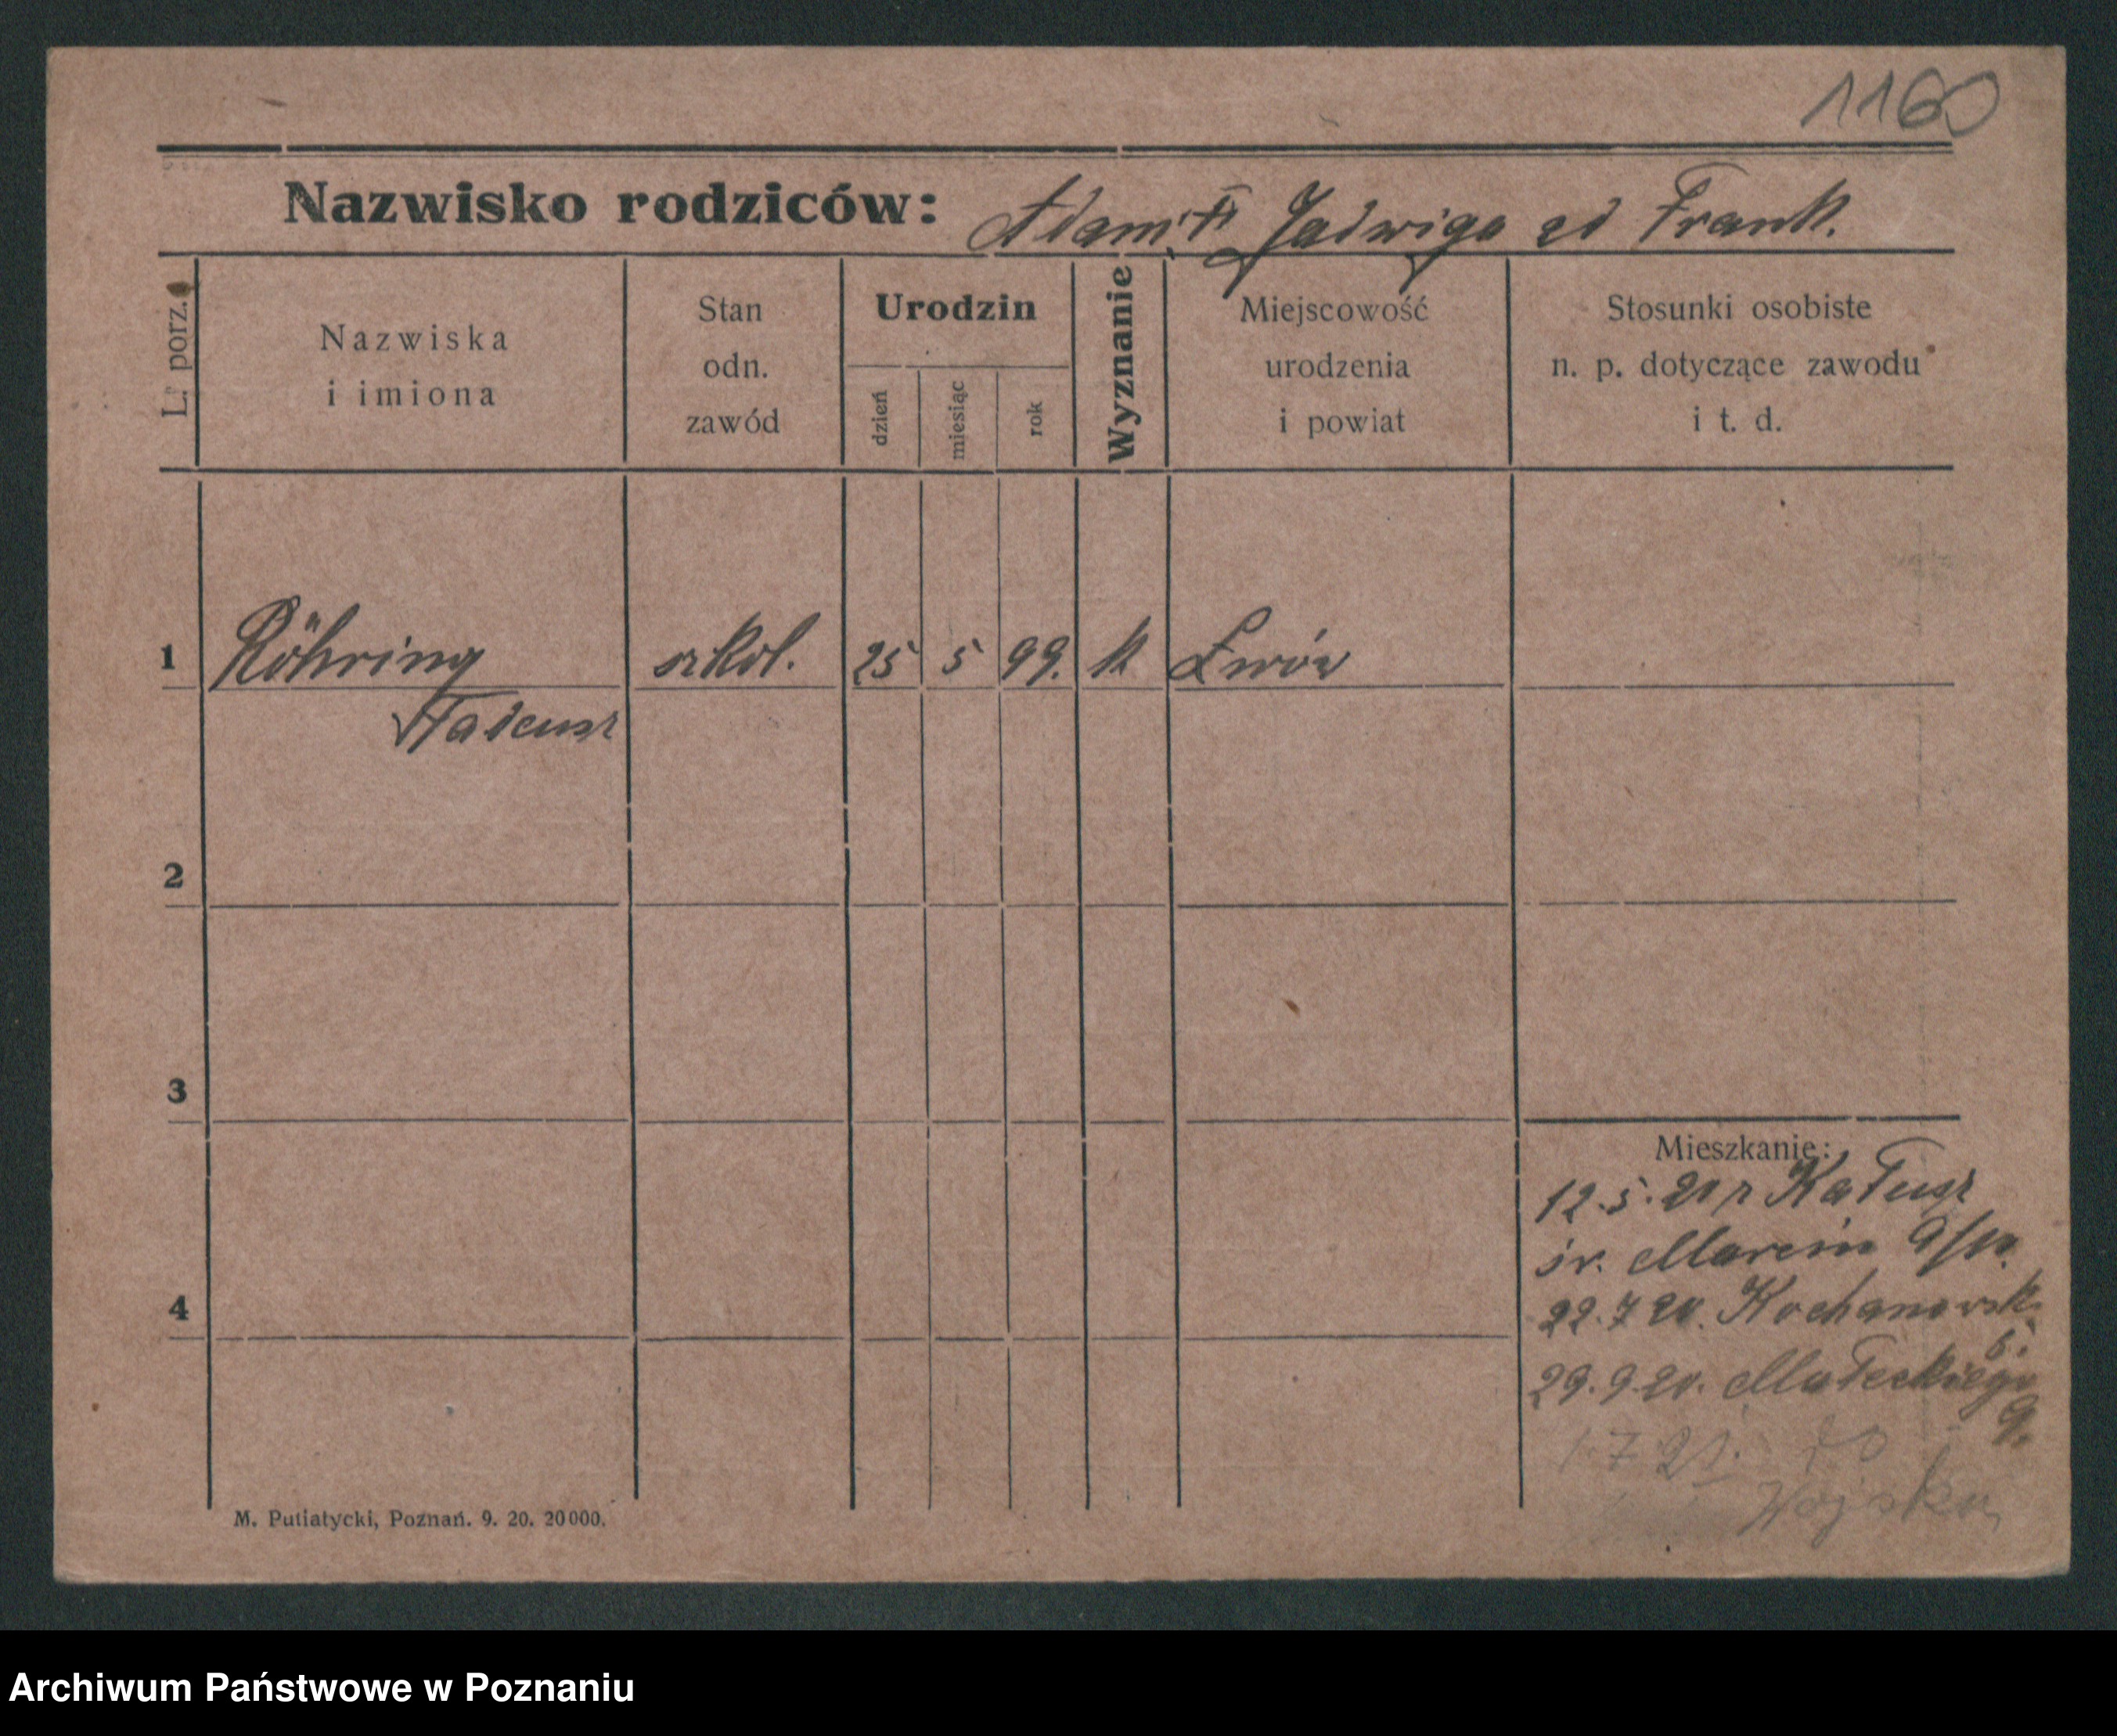 1160
Nazwisko rodziców: Adam i Jadwiga zd Frank.
L. porz.
Nazwiska
i imiona
Stan
odn.
zawód
Urodzin
dzień
miesiąc
rok
Wyznanie
Miejscowość
urodzenia
i powiat
Stosunki osobiste
n. p. dotyczące zawodu
i t. d.
1 Röhring szkol. 25 5 99. k Lwów
Tadeusz
2
3
4
Mieszkanie:
12.5.20 r
św. Marcin 9/10.
22.7 20. Kochanowsk.
6.
29.9 20. Małeckiego
9.
1.7 21. do
Wojska
M. Putiatycki, Poznań. 9. 20. 20000.
Archiwum Państwowe w Poznaniu